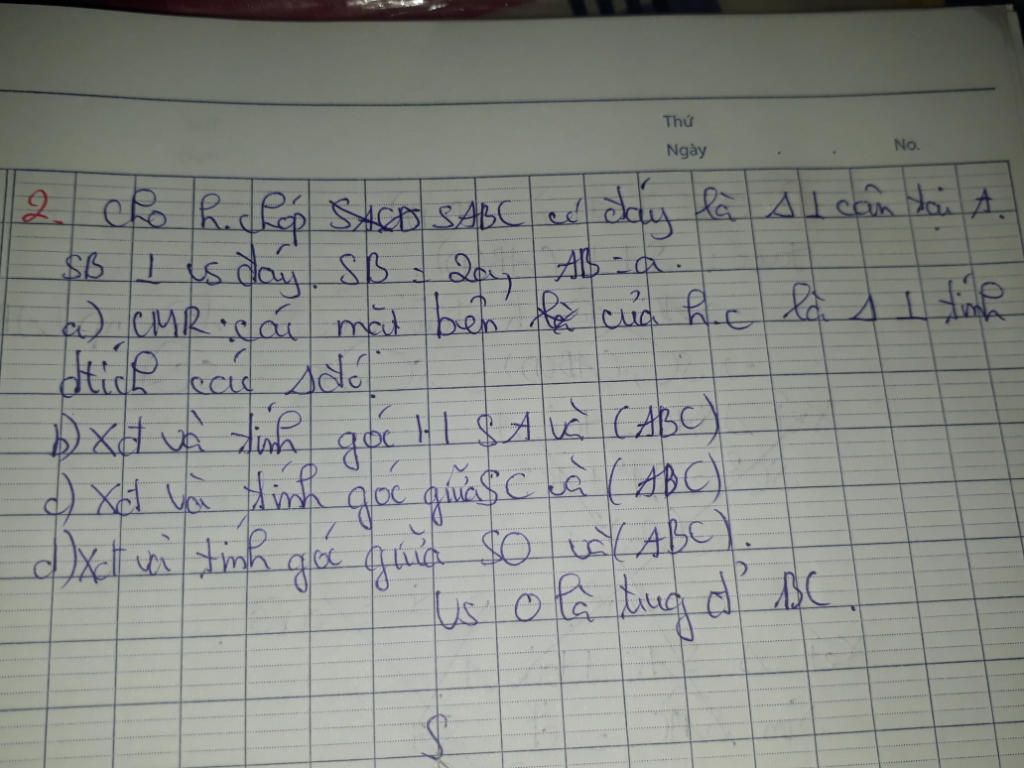 Thứ
Ngày . . No.
2. Cho h.chóp SABC có đáy là Δ⊥ cân tại A.
SB ⊥ vs đáy. SB = 2a, AB = a.
a) CMR: các mặt bên của h.c là Δ ⊥ tính
dtích các Δ đó.
b) Xđ và tính góc H SA và (ABC)
c) Xđ và tính góc giữa SC và (ABC)
d) Xđ và tính góc giữa SO và (ABC).
Vs O là tug đ' BC.
S